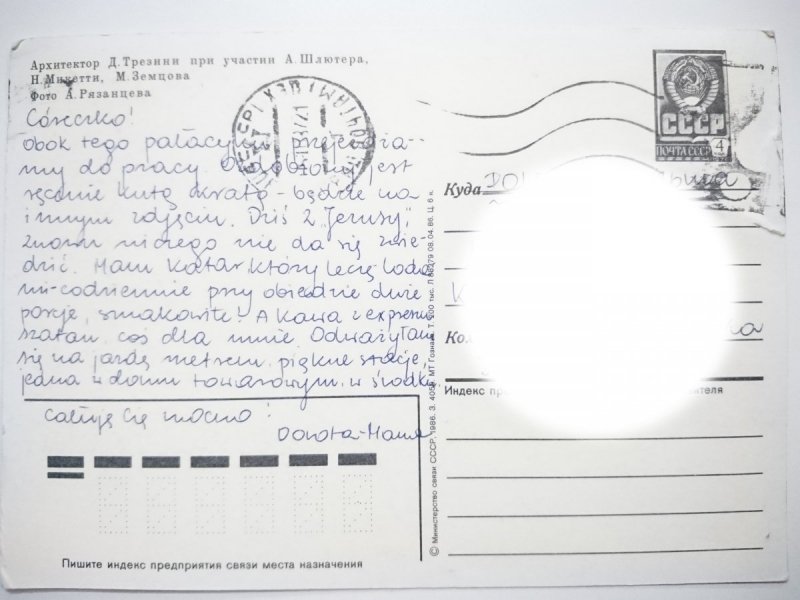 Архитектор Д.Трезини при участии А.Шлютера,
Н.Микетти, М.Земцова
Фото А.Рязанцева
Córeczko!
obok tego pałacyku przejeżdża-
my do pracy. Ozdobiony jest
ręcznie kutą kratą - będzie na
innym zdjęciu. Dziś z "Jerusy"
znowu niczego nie da się zwie-
dzić. Mam katar, który leczę loda-
mi - codziennie przy obiedzie dwie
porcje, smakowite! A kawa z expresu
szatan, coś dla mnie. Odważyłam
się na jazdę metrem, piękne stacje,
jedna w domu towarowym, w środku
całuję Cię mocno!
Dorota-Mama
СССР
ПОЧТА СССР
4
Куда
Индекс
© Министерство связи СССР, 1986. З. 4059. МТ Гознака. Т. 200 тыс. Л 88279 08.04.86. Ц. 6 к.
Пишите индекс предприятия связи места назначения